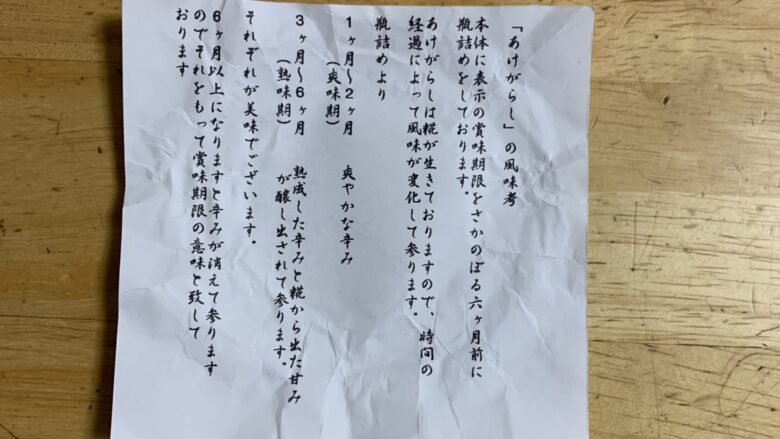 「あけがらし」の風味考
本体に表示の賞味期限をさかのぼる六ヶ月前に
瓶詰めをしております。
あけがらしは糀が生きておりますので、時間の
経過によって風味が変化して参ります。
瓶詰めより
１ヶ月～２ヶ月　爽やかな辛み
（爽味期）
３ヶ月～６ヶ月　熟成した辛みと糀から出た甘み
（熟味期）　が醸し出されて参ります。
それぞれが美味でございます。
６ヶ月以上になりますと辛みが消えて参ります
のでそれをもって賞味期限の意味と致して
おります